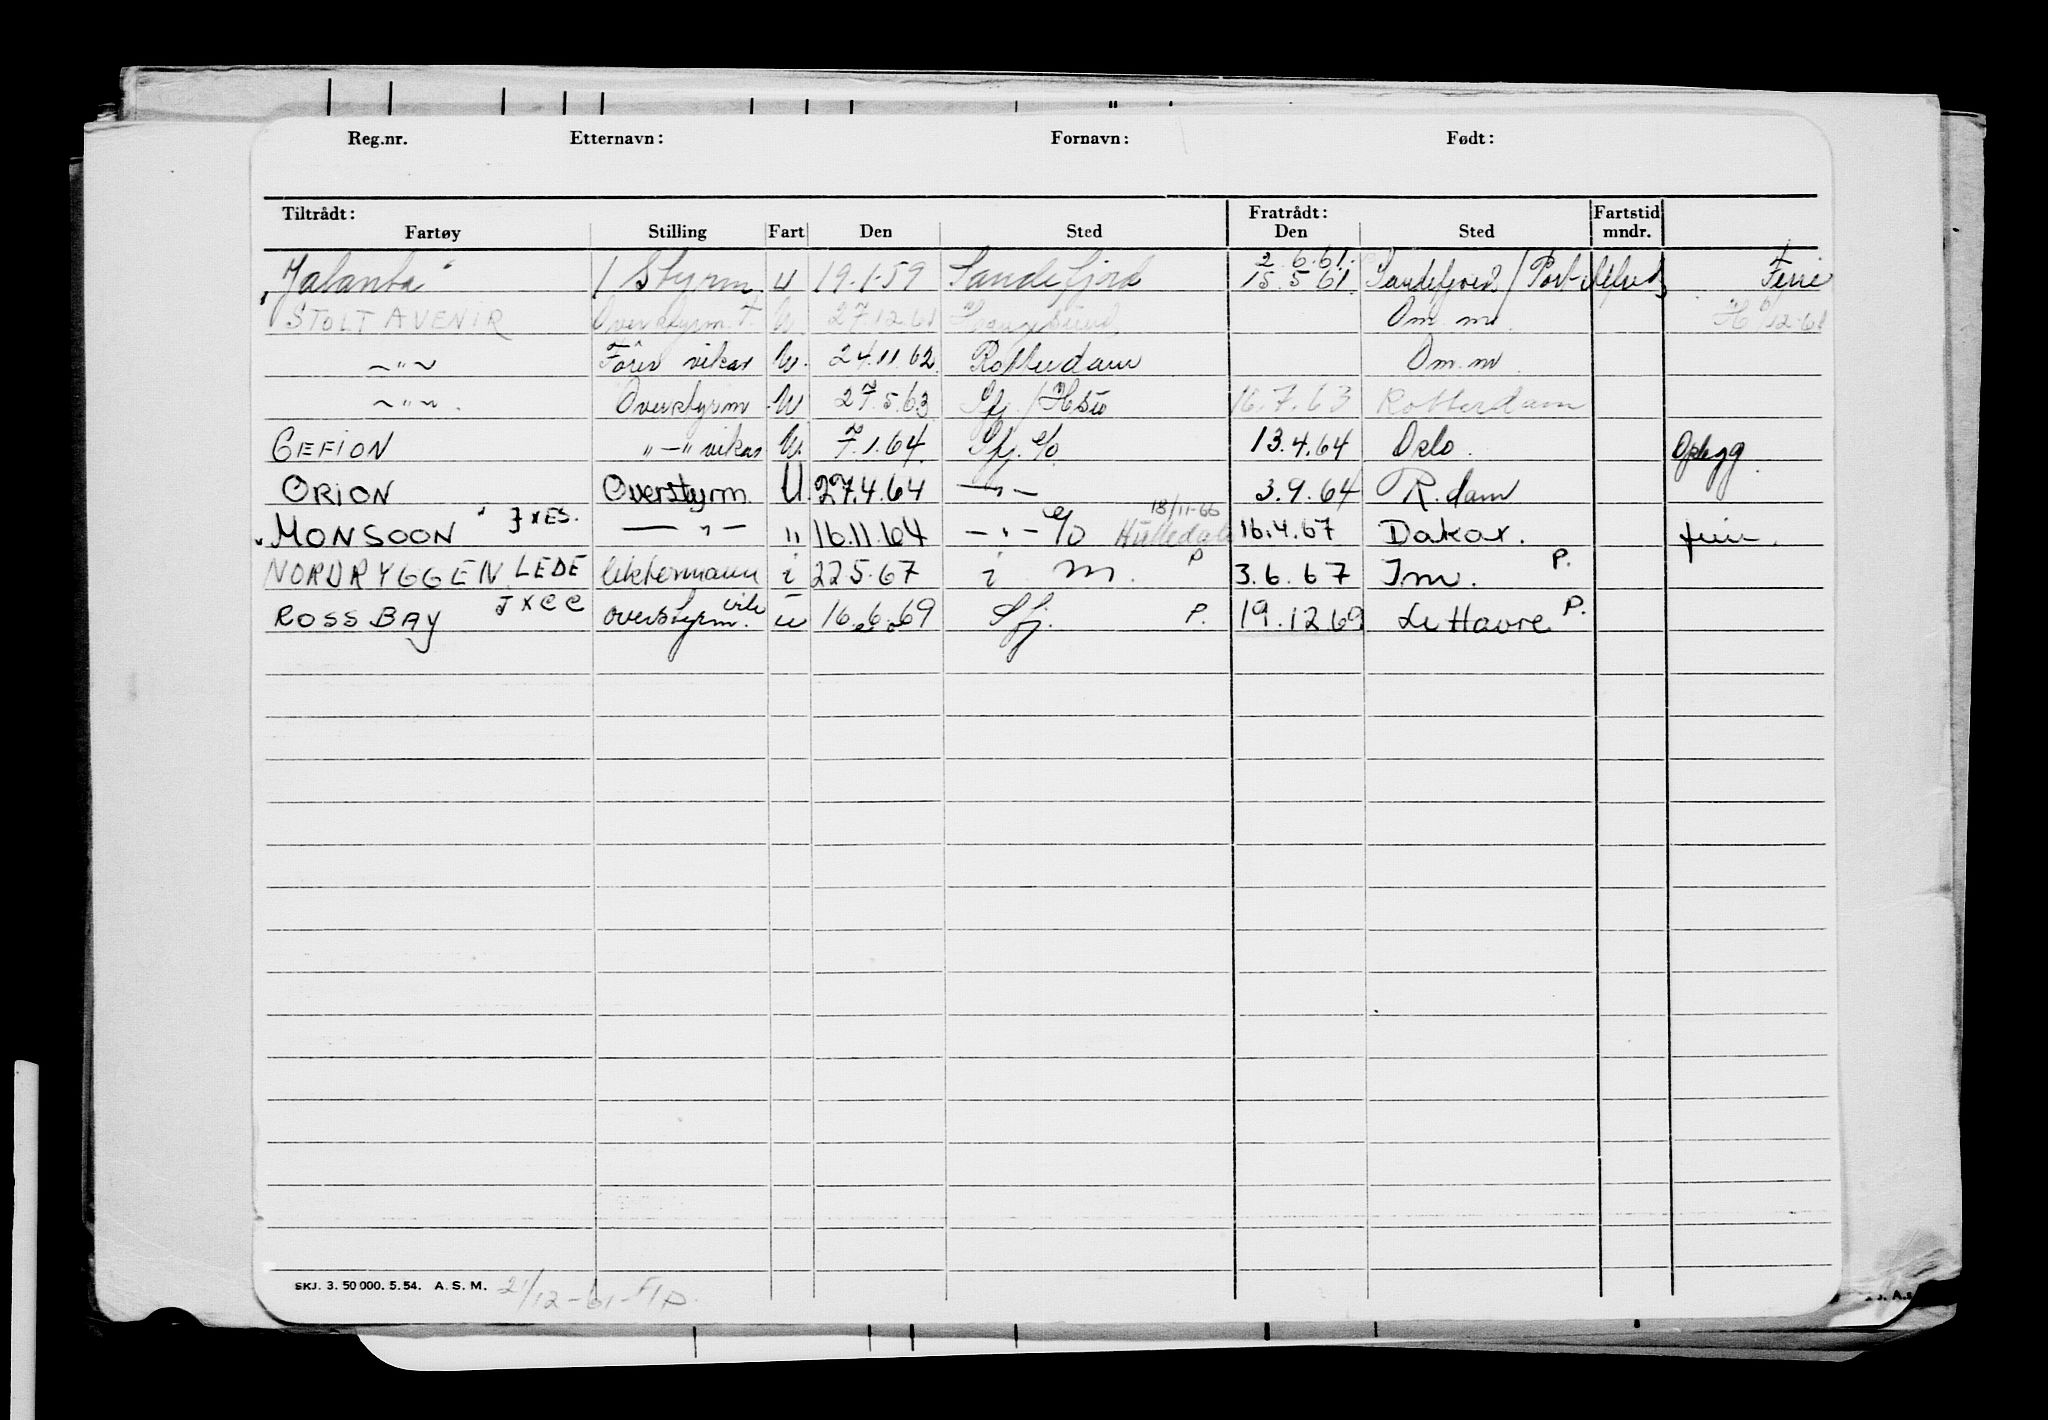 Reg.nr. Etternavn: Fornavn: Født:
Tiltrådt: Fratrådt: Fartstid
Fartøy Stilling Fart Den Sted Den Sted mndr.
2.6.61.
"Jalanta" 1 Styrm u 19.1.59 Sandefjord 15.5.61. Sandefjord / Port Ferie
STOLT AVENIR Overstyrm. U. 27.12.61 Haugesund Om. m. H 12-61
-"- Fører vikar U. 24.11.62. Rotterdam Om. m.
-"-. Overstyrm U 27.5.63 Sfj. 16.7.63 Rotterdam
GEFION "-" vikar U. 7.1.64. Sfj. 13.4.64 Oslo. Opbygg.
ORION Overstyrm. U. 27.4.64 -"- 3.9.64 R.dam
18/11-66
"MONSOON" JXES. -"- " 16.11.64 -"- 16.4.67 Dakar. ferie.
NORDRYGGEN LEDE i 22.5.67 i m. P 3.6.67 Im. P.
ROSS BAY JXCC overstyrm. vik u 16.6.69 Sfj. P. 19.12.69 Le Havre P.
SKJ. 3. 50 000. 5. 54. A. S. M. 21/12-61